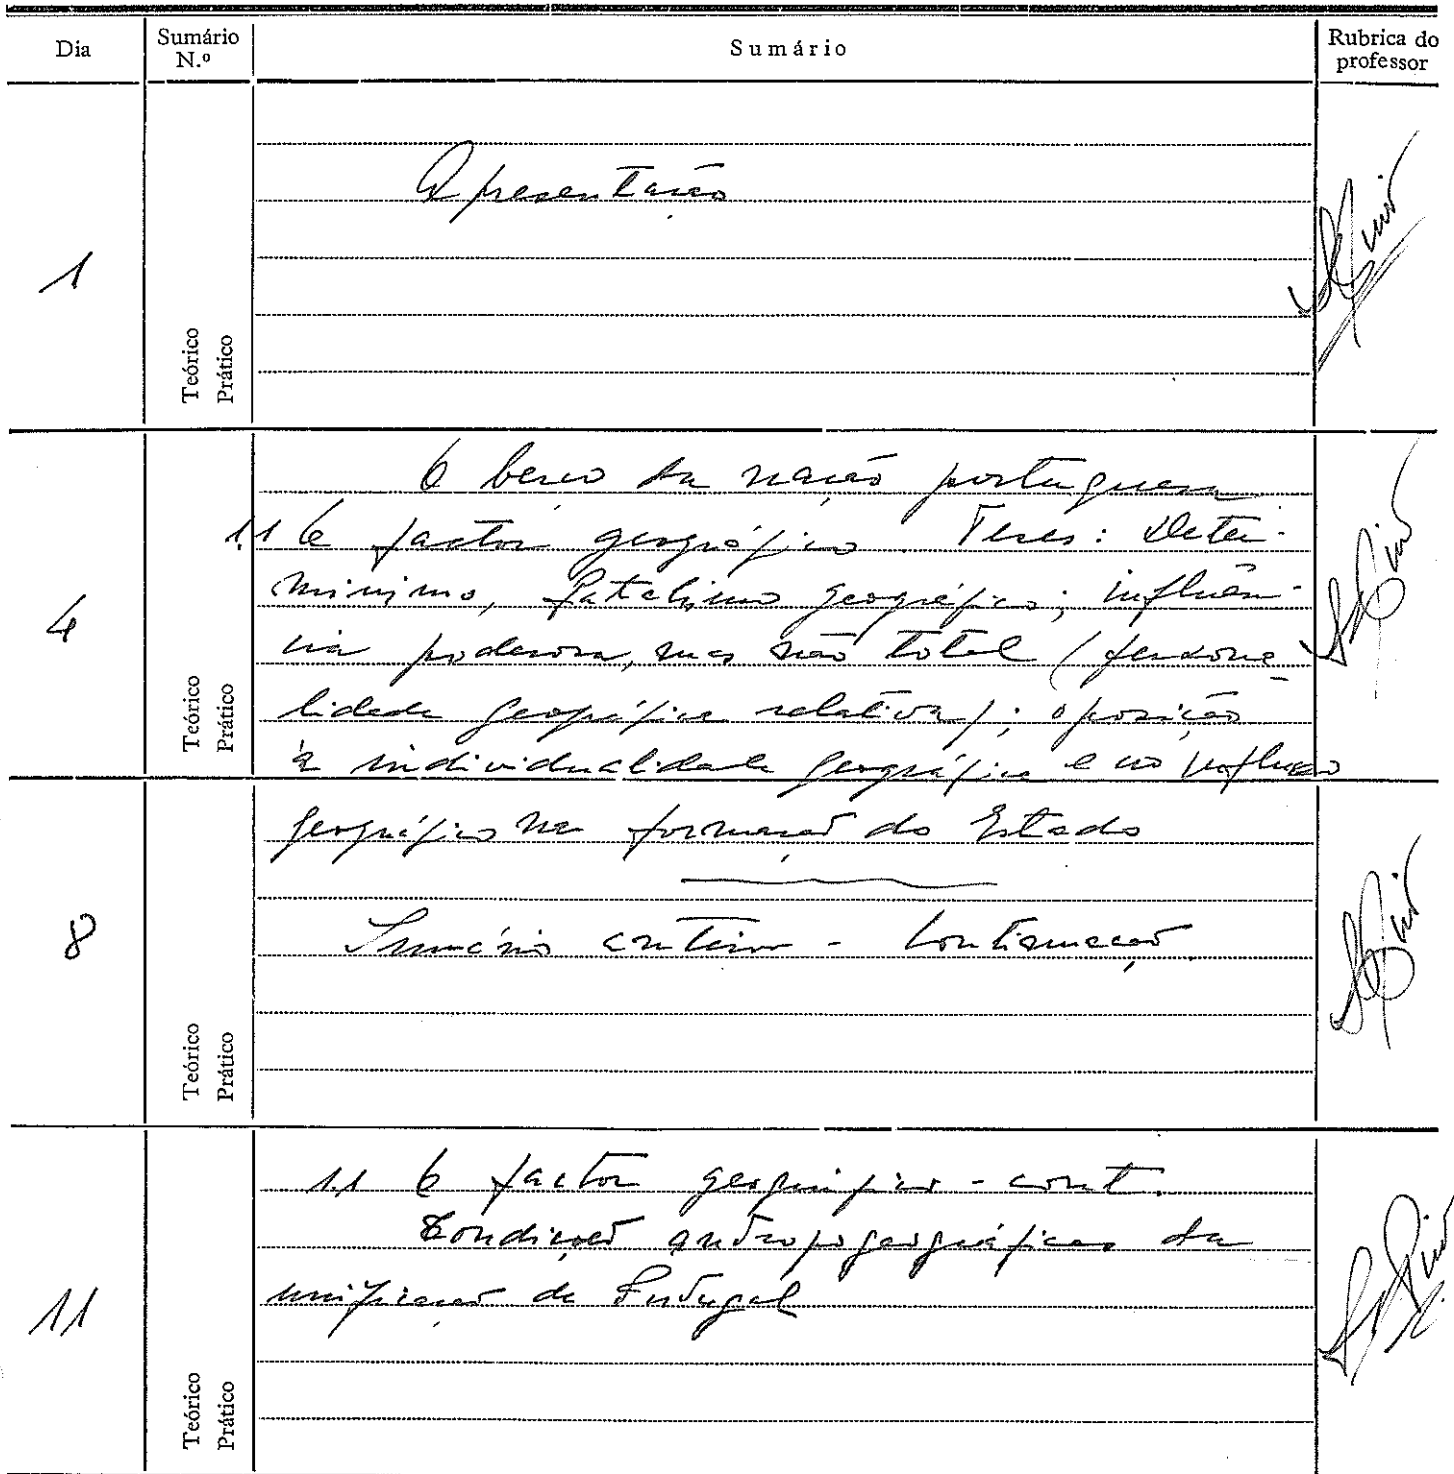 Dia
Sumário N.º
Sumário
Rubrica do professor
1
Teórico
Prático
Apresentação
4
Teórico
Prático
O berço da nação portuguesa
1.1 O factor geográfico. Teses: Deter-
minismo, fatalismo geográfico; influên-
cia poderosa, mas não total (persona-
lidade geográfica relativa); oposição
à individualidade geográfica e ao influxo
8
Teórico
Prático
geográfico na formação do Estado
Sumário anterior - Continuação
11
Teórico
Prático
1.1 O factor geográfico - cont.
Condições antropogeográficas da
unificação de Portugal